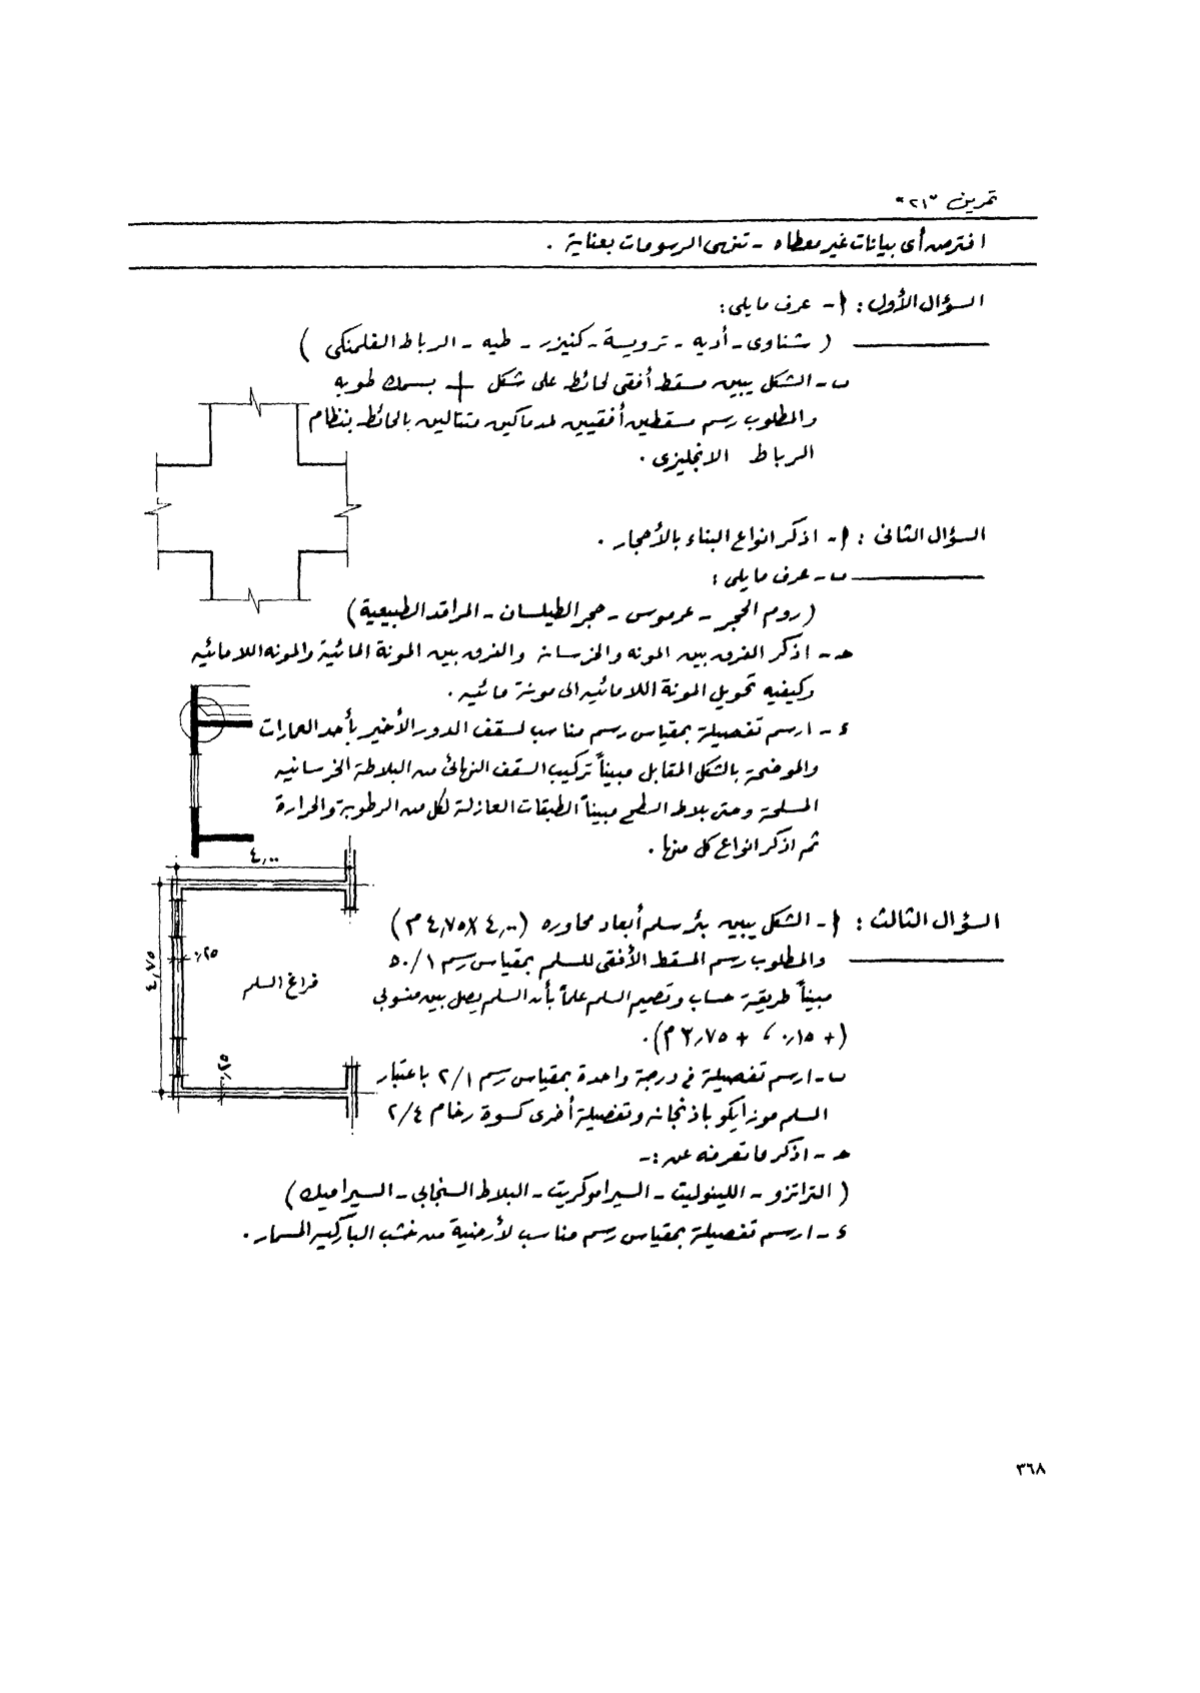 تمرين "٢١"
افترض أى بيانات غير معطاه - تنهى الرسومات بعناية .
السؤال الأول : ا - عرف ما يلى :
( شناوى - أديه - ترويسة - كنيزر - طيه - الرباط الفلمنكى )
ب - الشكل يبين مسقط أفقى لحائط على شكل + بسمك طوبه
والمطلوب رسم مسقطين أفقيين لمدماكين متتالين بالحائط بنظام
الرباط الانجليزى .
السؤال الثانى : ا - اذكر انواع البناء بالأحجار .
ب - عرف ما يلى :
( روم الحجر - عرموس - حجر الطيلسان - المراقد الطبيعية )
حـ - اذكر الفرق بين المونه والخرسانه والفرق بين المونة المائية والمونه اللامائيه
وكيفيه تحويل المونة اللامائيه الى مونة مائيه .
ء - ارسم تفصيلة بمقياس رسم مناسب لسقف الدور الأخير بأحد العمارات
والموضحة بالشكل المقابل مبيناً تركيب السقف النهائى من البلاطة الخرسانيه
المسلحة وحتى بلاط السطح مبيناً الطبقات العازلة لكل من الرطوبة والحرارة
ثم اذكر انواع كل منها .
٤,٠٠
السؤال الثالث : ا - الشكل يبين بئر سلم أبعاد محاوره ( ٤,٠٠ × ٤,٧٥ م )
والمطلوب رسم المسقط الأفقى للسلم بمقياس رسم ٥٠/١
مبيناً طريقة حساب وتصميم السلم علماً بأن السلم يصل بين منسوبى
( + ٠,١٥ ، + ٣,٧٥ م ) .
٤,٧٥
٠,٢٥
فراغ السلم
٠,٢٥
ب - ارسم تفصيلة فى درجة واحدة بمقياس رسم ٢/١ باعتبار
السلم موزايكو باذنجانه وتفصيلة أخرى كسوة رخام ٢/٤
حـ - اذكر ما تعرفه عن : -
( التراتزو - اللينوليت - السيراموكريت - البلاط السنجابى - السيراميك )
ء - ارسم تفصيلة بمقياس رسم مناسب لأرضية من خشب الباركيه المسمار .
٣٦٨